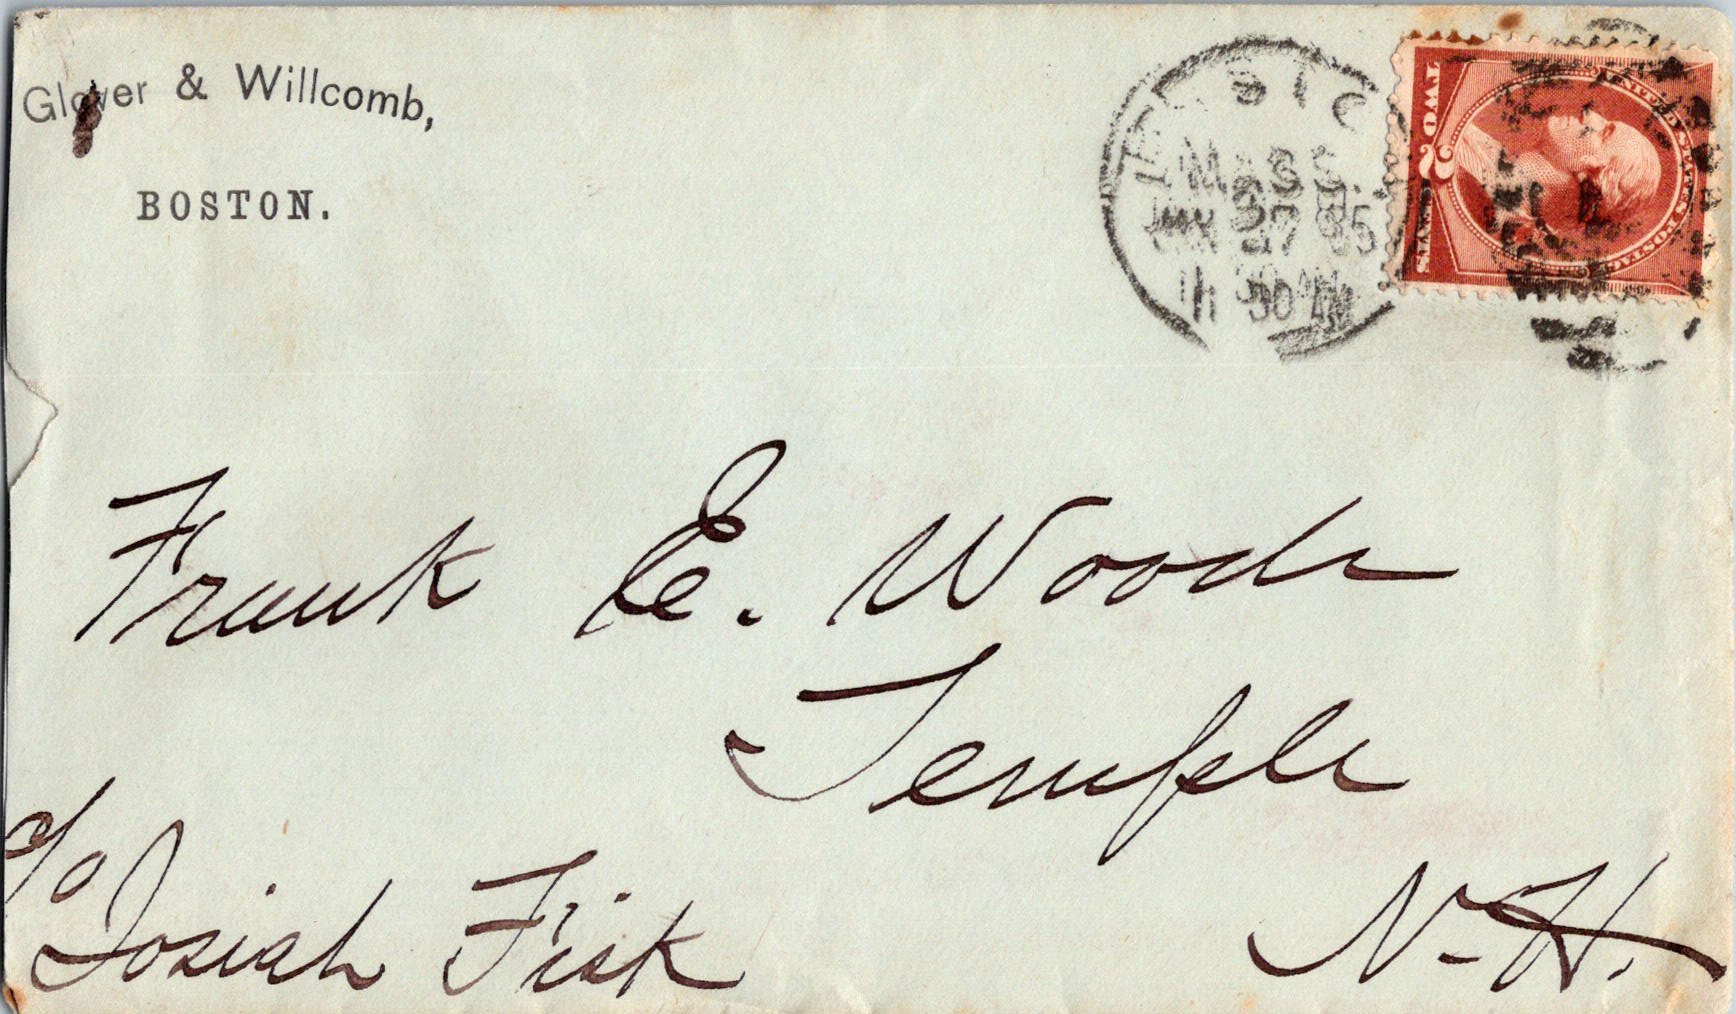 Glover & Willcomb,
BOSTON.
MASS.
JAN 27 85
11 30 AM
UNITED STATES POSTAGE
TWO 2 CENTS
Frank E. Wood
Temple
N-H.
c/o
Josiah Fisk